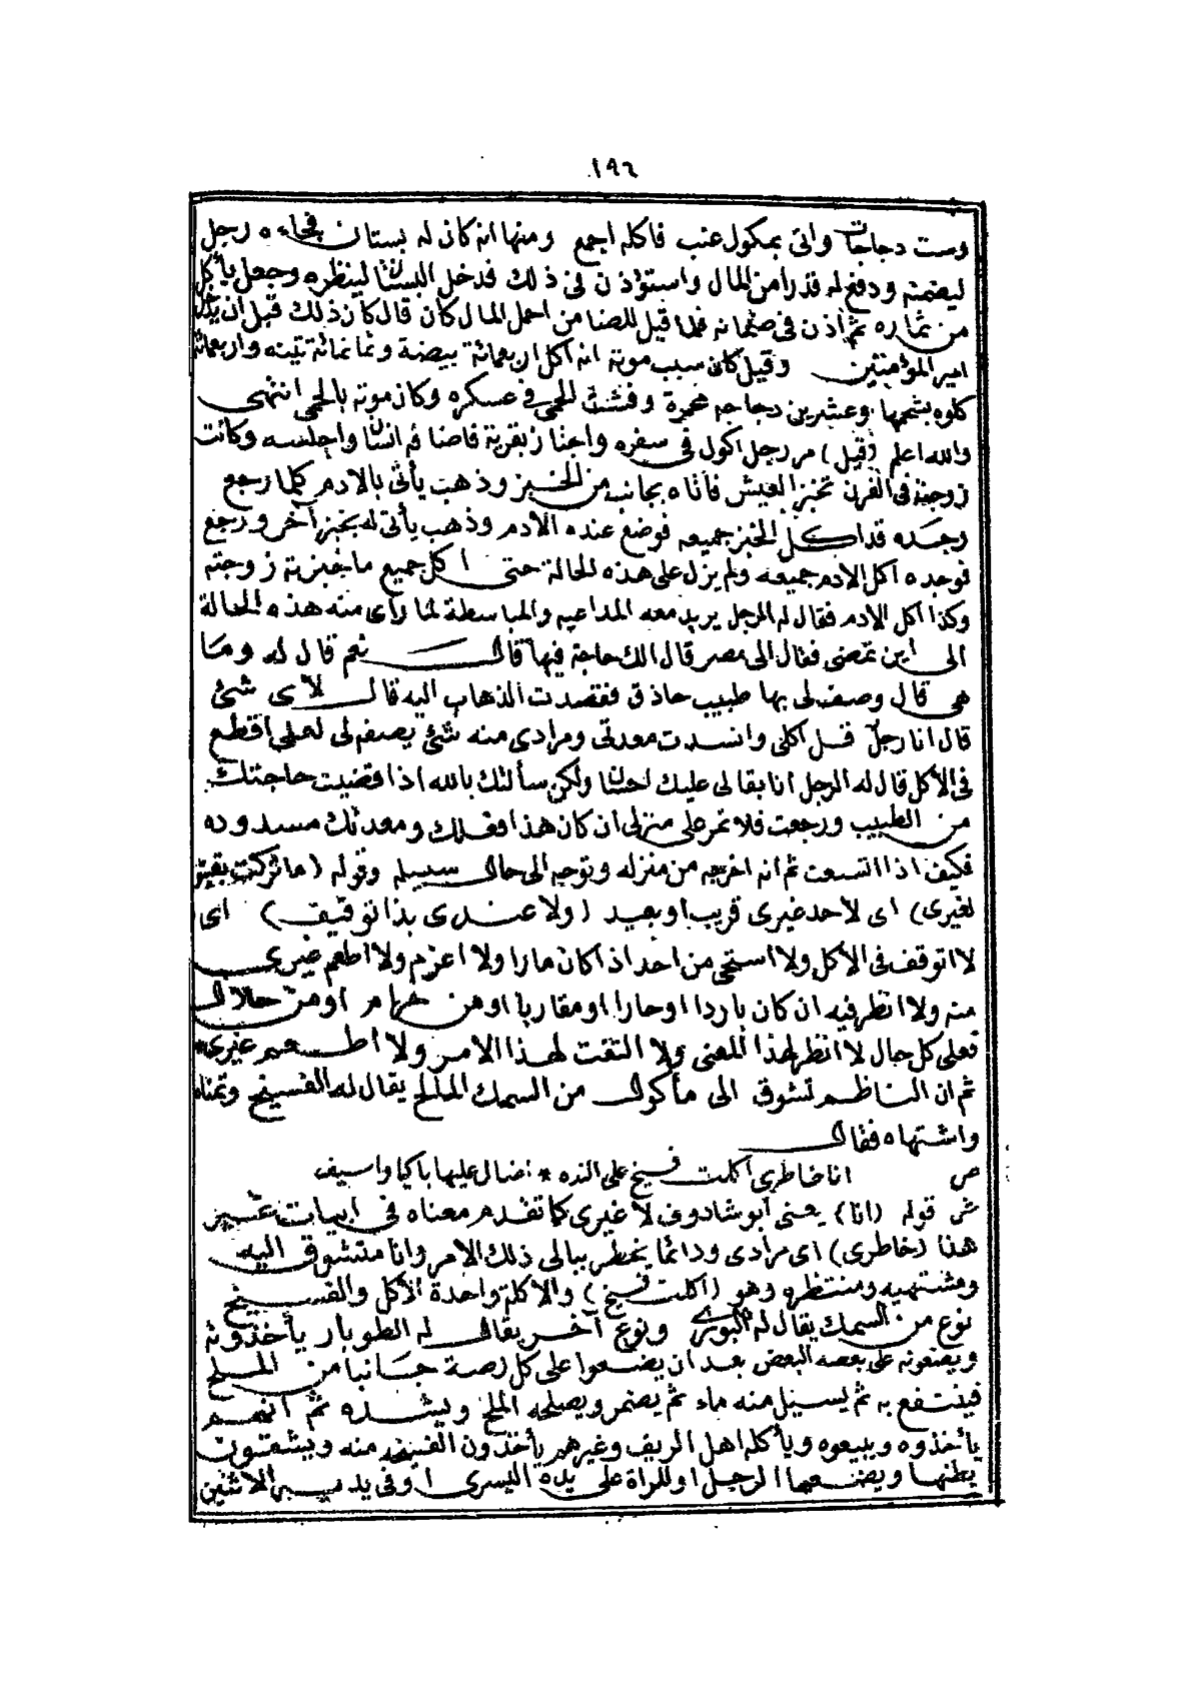 ١٩٦
وست دجاجات واتى بمكول عنب فاكله اجمع ومنها انه كان له بستان فجاءه رجل
ليضمنه ودفع له قدرا من المال واستؤذن فى ذلك فدخل البستان لينظره وجعل يأكل
من ثماره ثم أذن فى ضمانه فلما قيل للضامن احمل المال كان قال كان ذلك قبل ان يدخل
امير المؤمنين وقيل كان سبب موته انه اكل اربعمائة بيضة وثمانمائة تينه واربعمائة
كلوه بشحمها وعشرين دجاجه وفشت الحمى فى عسكره وكان موته بالحمى انتهى
والله اعلم (قيل) مر رجل اكول فى سفره واجتاز بقرية فاضافه انسان واجلسه وكانت
زوجته فى الفرن تخبز العيش فأتاه بجانب من الخبز وذهب يأتى بالادم كلما رجع
وجده قد اكل الخبز جميعه فوضع عنده الادم وذهب يأتى له بخبز آخر ورجع
فوجده اكل الادم جميعه ولم يزل على هذه الحالة حتى اكل جميع ما خبزته زوجته
وكذا اكل الادم فقال له الرجل يريد معه المداعبه والمباسطة لما رأى منه هذه الحالة
الى اين تمضى فقال الى مصر قال الك حاجة فيها قال نعم قال له وما
هى قال وصف لى بها طبيب حاذق فقصدت الذهاب اليه قال لأى شئ
قال انا رجل قل اكلى وانسدت معدتى ومرادى منه شئ يصفه لى لعلى اقطع
فى الأكل قال له الرجل انا بقا لى عليك احسان ولكن سألتك بالله اذا قضيت حاجتك
من الطبيب ورجعت فلا تمر على منزلى ان كان هذا فعلك ومعدتك مسدوده
فكيف اذا اتسعت ثم انه اخرجه من منزله وتوجه الى حال سبيله وقوله (ما تركت بقيتو
لغيرى) اى لاحد غيرى قريب او بعيد (ولا عندى بذا توقيف) اى
لا اتوقف فى الاكل ولا استحى من احد اذا كان مارا ولا اعزم ولا اطعم غيرى
منه ولا انظر فيه ان كان باردا او حارا او مقاربا او من حرام او من حلال
فعلى كل حال لا انظر لهذا المعنى ولا التفت لهذا الامر ولا اطعم غيرى*
ثم ان الناظم تشوق الى مأكول من السمك المملح يقال له الفسيخ وتمناه
واشتهاه فقال
ص انا خاطرى اكلت فسيخ على النده * اضال عليها باكيا واسيف
ش قوله (انا) يعنى أبو شادوف لا غيرى كما تقدم معناه فى ابيات غير
هذا (خاطرى) اى مرادى ودائما يخطر ببالى ذلك الامر وانا متشوق اليه
ومشتهيه ومنتظره وهو (اكلت فسيخ) والاكله واحدة الأكل والفسيخ
نوع من السمك يقال له البورى ونوع آخر يقال له الطوبار يأخذونه
ويضعونه على بعضه البعض بعد ان يضعوا على كل رصة جانبا من الملح
فينتفع به ثم يسيل منه ماء ثم يضمر ويصلحه الملح ويشده ثم انهم
يأخذوه ويبيعوه ويأكله اهل الريف وغيرهم يأخذون الفسيخه منه ويشقون
بطنها ويضعها الرجل او المرأة على يده اليسرى او فى يديه الاثنين